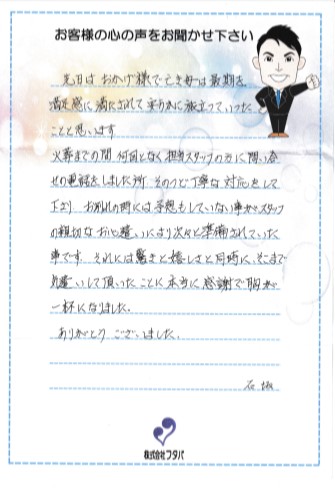 お客様の心の声をお聞かせ下さい
先日は おかげ様で亡き母は最期を
満足感に満たされて安らかに旅立っていった
ことと思います
火葬までの間 何回となく担当スタッフの方に問い合
せの電話をしました所 そのつど丁寧な対応をして
下さり お別れの時には予想もしていない事がスタッフ
の親切なお心遣いにより次々と準備されていた
事です それには驚きと嬉しさと同時に、そこまで
気遣いして頂いたことに本当に感謝で胸が
一杯になりました。
ありがとうございました。
石坂
株式会社フタバ